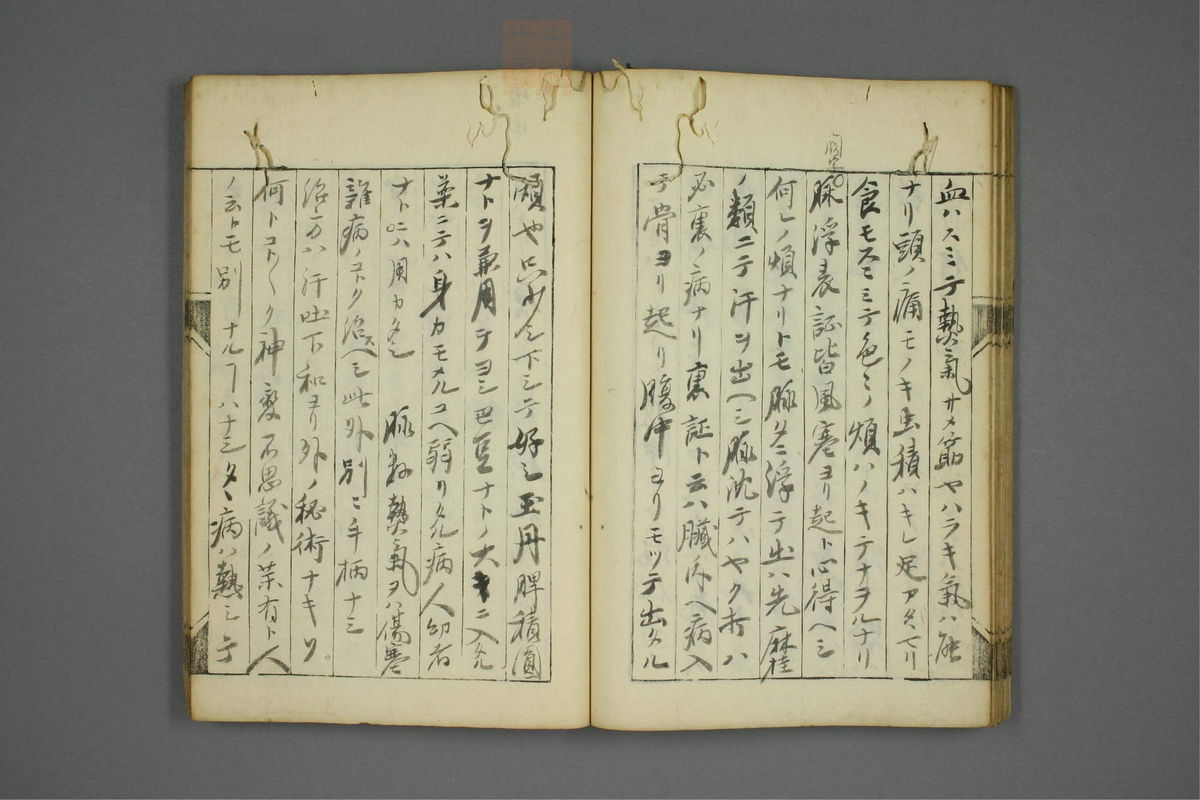 血ハスミテ熱氣サメ筋ヤハラキ氣ハ
ナリ頭ノ痛モノキ虫積ハキレ足アタヽマリ
食モスヽミテ色々ノ煩ハノキテナヲルナリ
脉浮表証皆風寒ヨリ起ト心得ヘシ
何レノ煩ナリトモ脉タニ浮テ出ハ先麻桂
ノ類ニテ汗ヲ出ヘシ脉沈テハヤク打ハ
必裏ノ病ナリ裏証ト云ハ臓内ヘ病入
テ骨ヨリ起リ腹中ヨリモツテ出タル
煩也只少シ下シテ好シ玉丹脾積圓
ナトヲ兼用テヨシ巴豆ナトノ大キニ入タル
薬ニテハ身カモメルユヘ弱リタル病人幼者
ナトニハ用カタシ 脉数熱氣ヲハ傷寒
雜病ノコトク治スヘシ此外別ニ手柄ナシ
治方ハ汗吐下和ヨリ外ノ秘術ナキソ
何トコト〱ク神変不思議ノ薬有ト人
ノ云トモ別ナルコハナシタヽ病ハ熱シテ